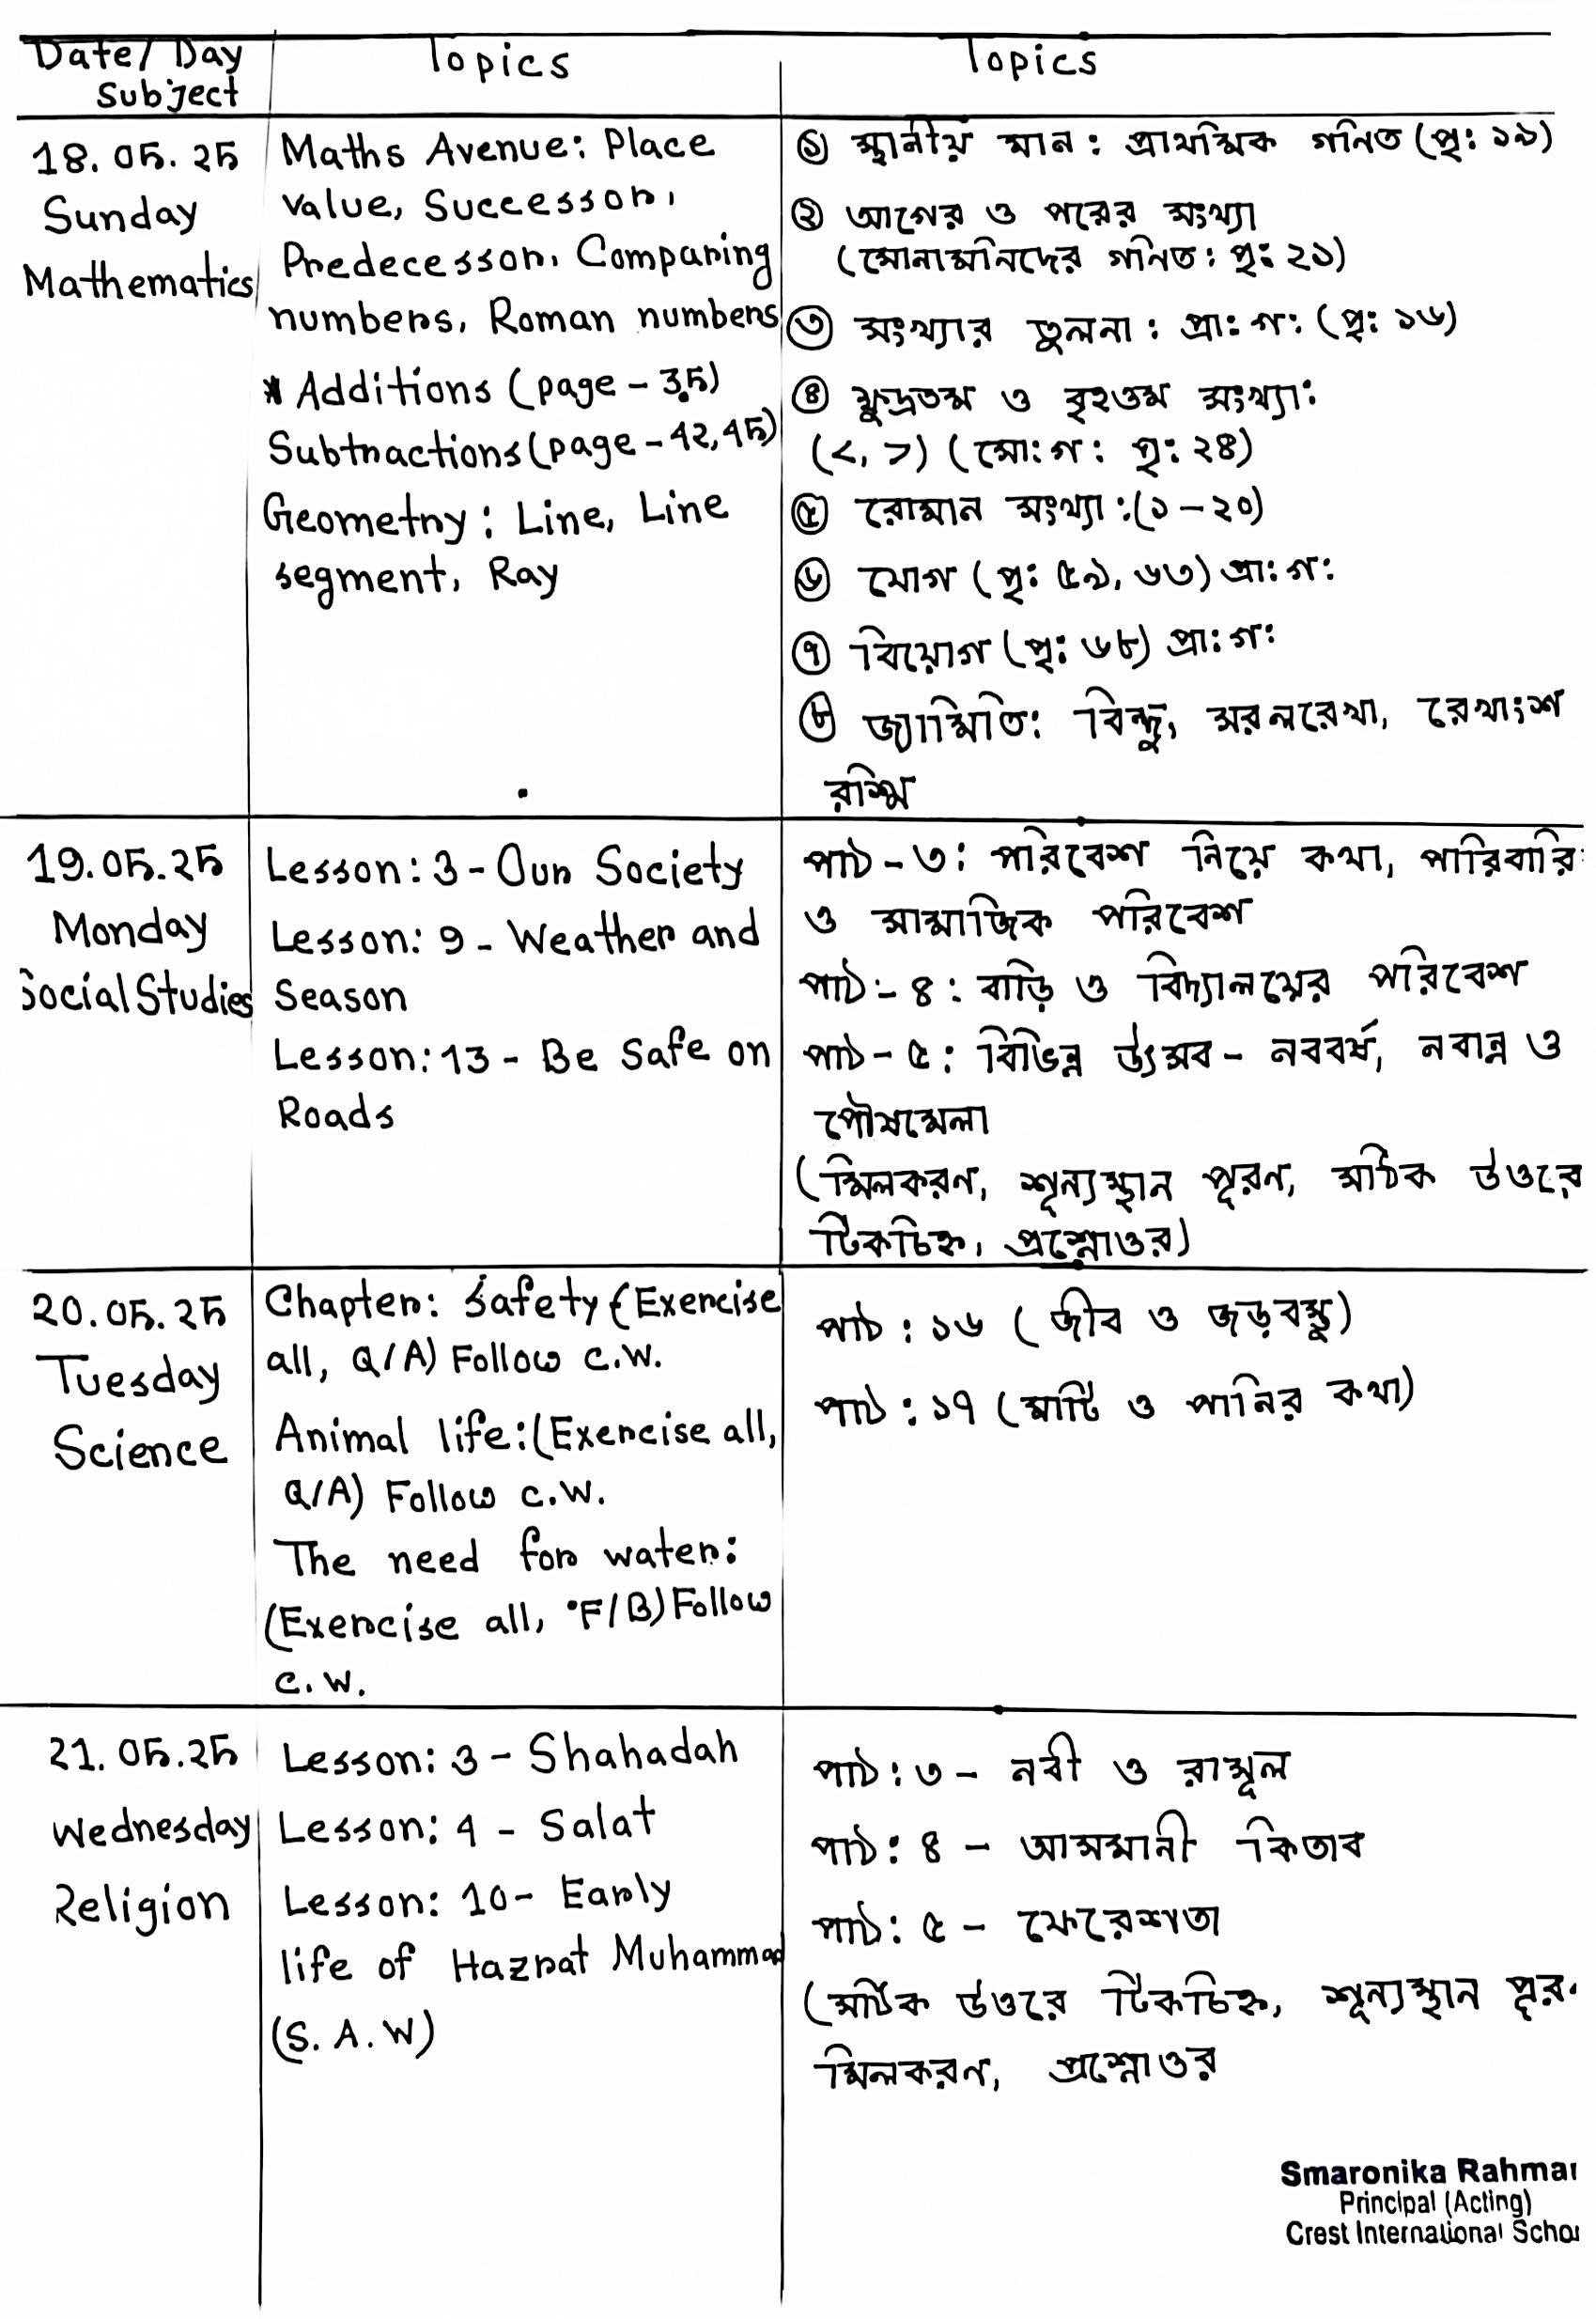 Date/Day Topics Topics
Subject
18.05.25
Sunday
Mathematics
Maths Avenue: Place
value, Successor,
Predecessor, Comparing
numbers, Roman numbers
* Additions (page - 35)
Subtractions (page - 42, 45)
Geometry: Line, Line
segment, Ray
① স্থানীয় মান : প্রাথমিক গনিত (পৃ: ১৯)
② আগের ও পরের সংখ্যা
(সোনামনিদের গনিত: পৃ: ২১)
③ সংখ্যার তুলনা : প্রা: গ: (পৃ: ১৬)
④ ক্ষুদ্রতম ও বৃহওম সংখ্যা:
(<, >) (সো: গ: পৃ: ২৪)
⑤ রোমান সংখ্যা : (১ - ২০)
⑥ যোগ (পৃ: ৫৯, ৬৩) প্রা: গ:
⑦ বিয়োগ (পৃ: ৬৮) প্রা: গ:
⑧ জ্যামিতি: বিন্দু, সরলরেখা, রেখাংশ
রশ্মি
19.05.25
Monday
Social Studies
Lesson: 3 - Our Society
Lesson: 9 - Weather and
Season
Lesson: 13 - Be Safe on
Roads
পাঠ - ৩: পরিবেশ নিয়ে কথা, পারিবারি
ও সামাজিক পরিবেশ
পাঠ - ৪ : বাড়ি ও বিদ্যালয়ের পরিবেশ
পাঠ - ৫ : বিভিন্ন উৎসব - নববর্ষ, নবান্ন ও
পৌষমেলা
(মিলকরণ, শূন্যস্থান পূরণ, সঠিক উওরে
টিকচিহ্ন, প্রশ্নোওর)
20.05.25
Tuesday
Science
Chapter: Safety (Exercise
all, Q/A) Follow C.W.
Animal life: (Exercise all,
Q/A) Follow C.W.
The need for water:
(Exercise all, F/B) Follow
C.W.
পাঠ : ১৬ (জীব ও জড়বস্তু)
পাঠ : ১৭ (মাটি ও পানির কথা)
21.05.25
Wednesday
Religion
Lesson: 3 - Shahadah
Lesson: 4 - Salat
Lesson: 10 - Early
life of Hazrat Muhammad
(S.A.W)
পাঠ : ৩ - নবী ও রাসূল
পাঠ : ৪ - আসমানী কিতাব
পাঠ : ৫ - ফেরেশতা
(সঠিক উওরে টিকচিহ্ন, শূন্যস্থান পূর
মিলকরণ, প্রশ্নোওর
Smaronika Rahma
Principal (Acting)
Crest International Schoo